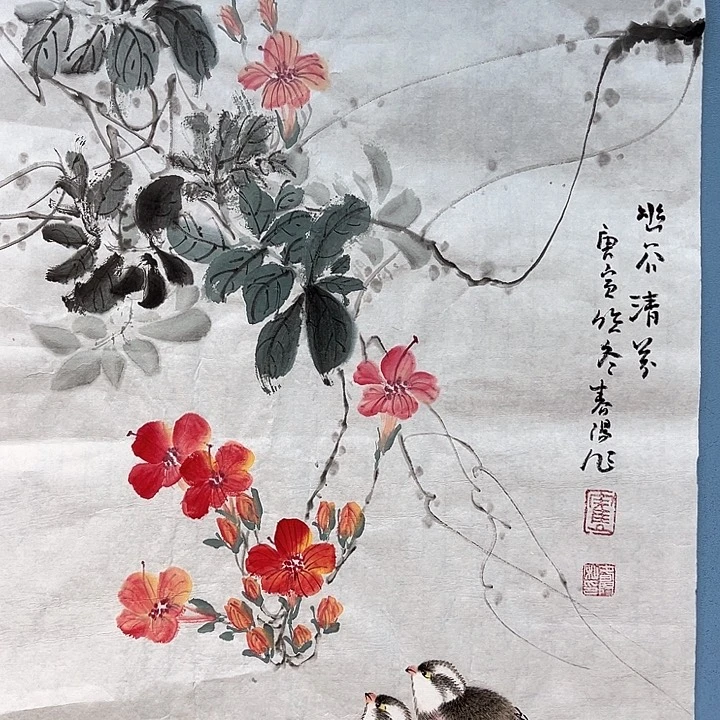 幽谷清芬
庚寅仲冬春阳作